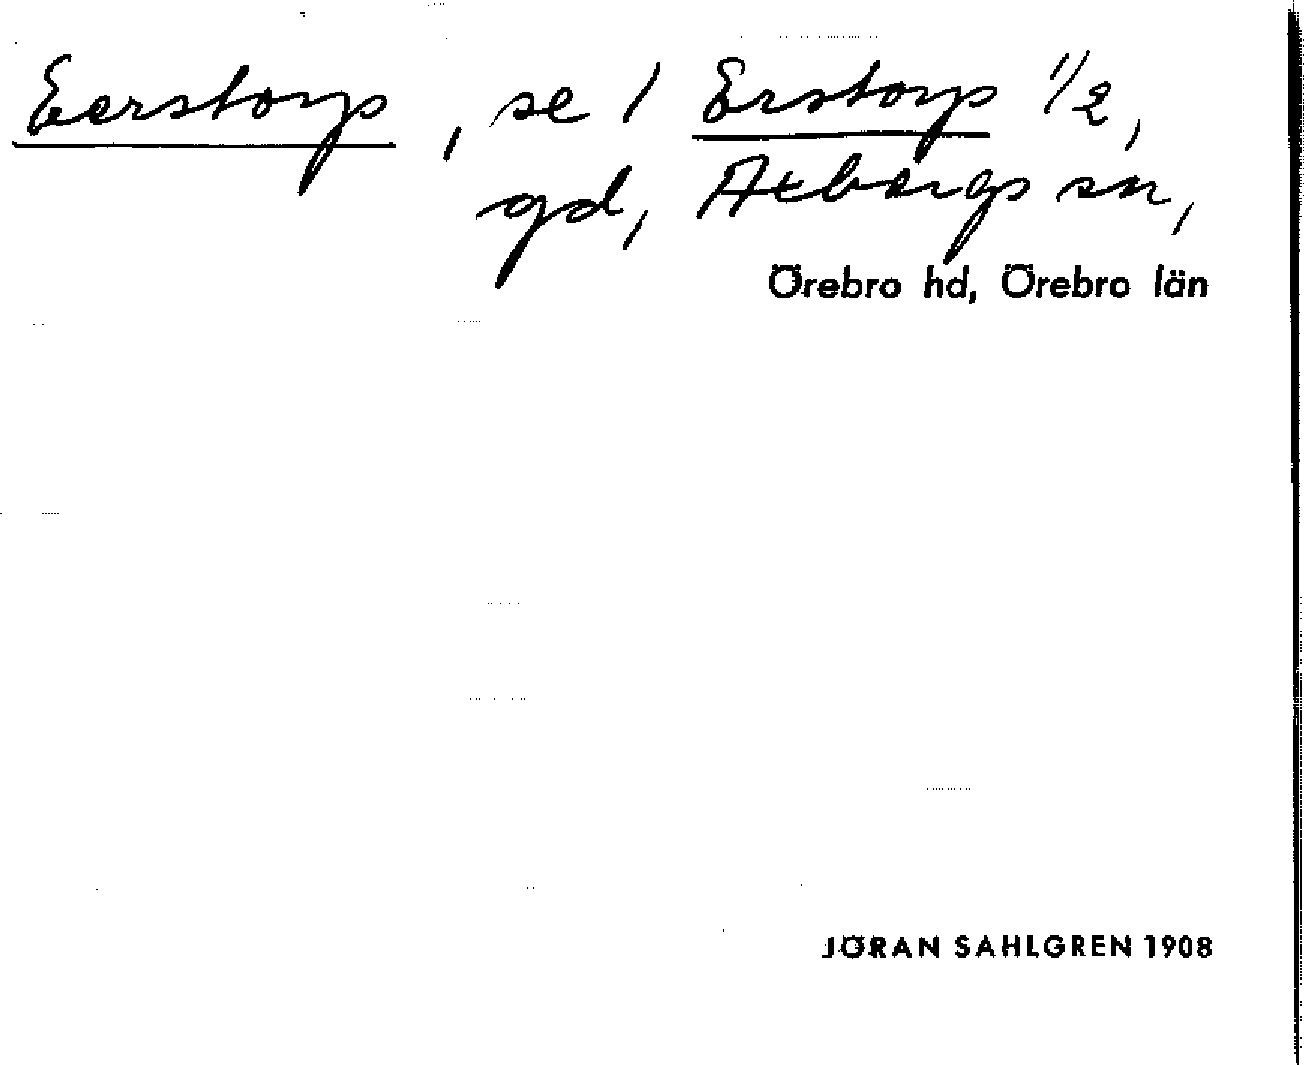 Eerstorp, se / Erstorp ½,
gd, Axbergs sn,
Örebro hd, Örebro län
JÖRAN SAHLGREN 1908